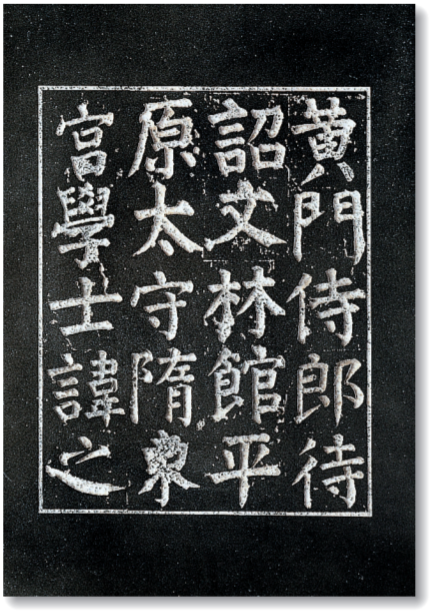 黄門侍郎待
詔文林館平
原太守隋東
宫學士諱之